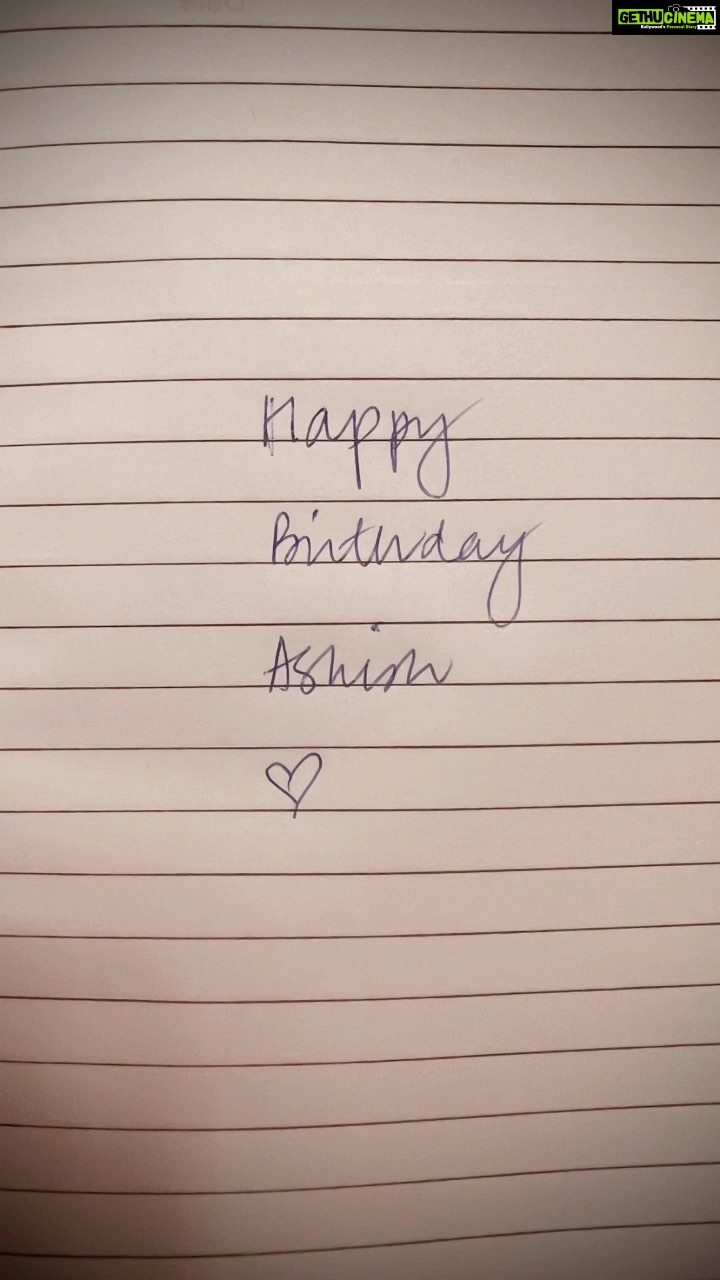 GETHUCINEMA
Kollywood's Personal Diary
Happy
Birthday
Ashish